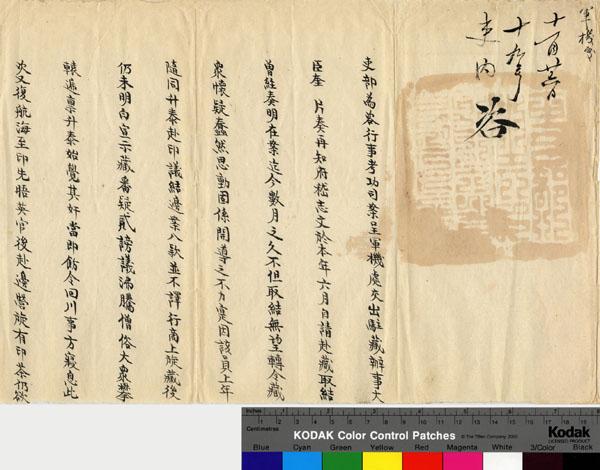 軍機處
十一月廿
十九
吏內
咨
吏部為咨行事考功司案呈軍機處交出駐藏辦事大
臣奎 片奏再知府嵇志文於本年六月自請赴藏取結
曾經奏明在案迄今數月之久不但取結無望轉令藏
衆懷疑蠢然思動固係開導之不力寔因該員上年
隨同升泰赴印議結邊案八款並不譯行商上旋藏後
仍未明白宣示藏番疑貳謗議沸騰僧俗大衆攀
轅遞禀升泰始覺其奸當即飭令回川事方寢息此
次又復航海至印先晤英官後赴邊營旋有印茶仍欲
Inches
Centimetres
KODAK Color Control Patches
© The Tiffen Company, 2000
Kodak
LICENSED PRODUCT
Blue Cyan Green Yellow Red Magenta White 3/Color Black